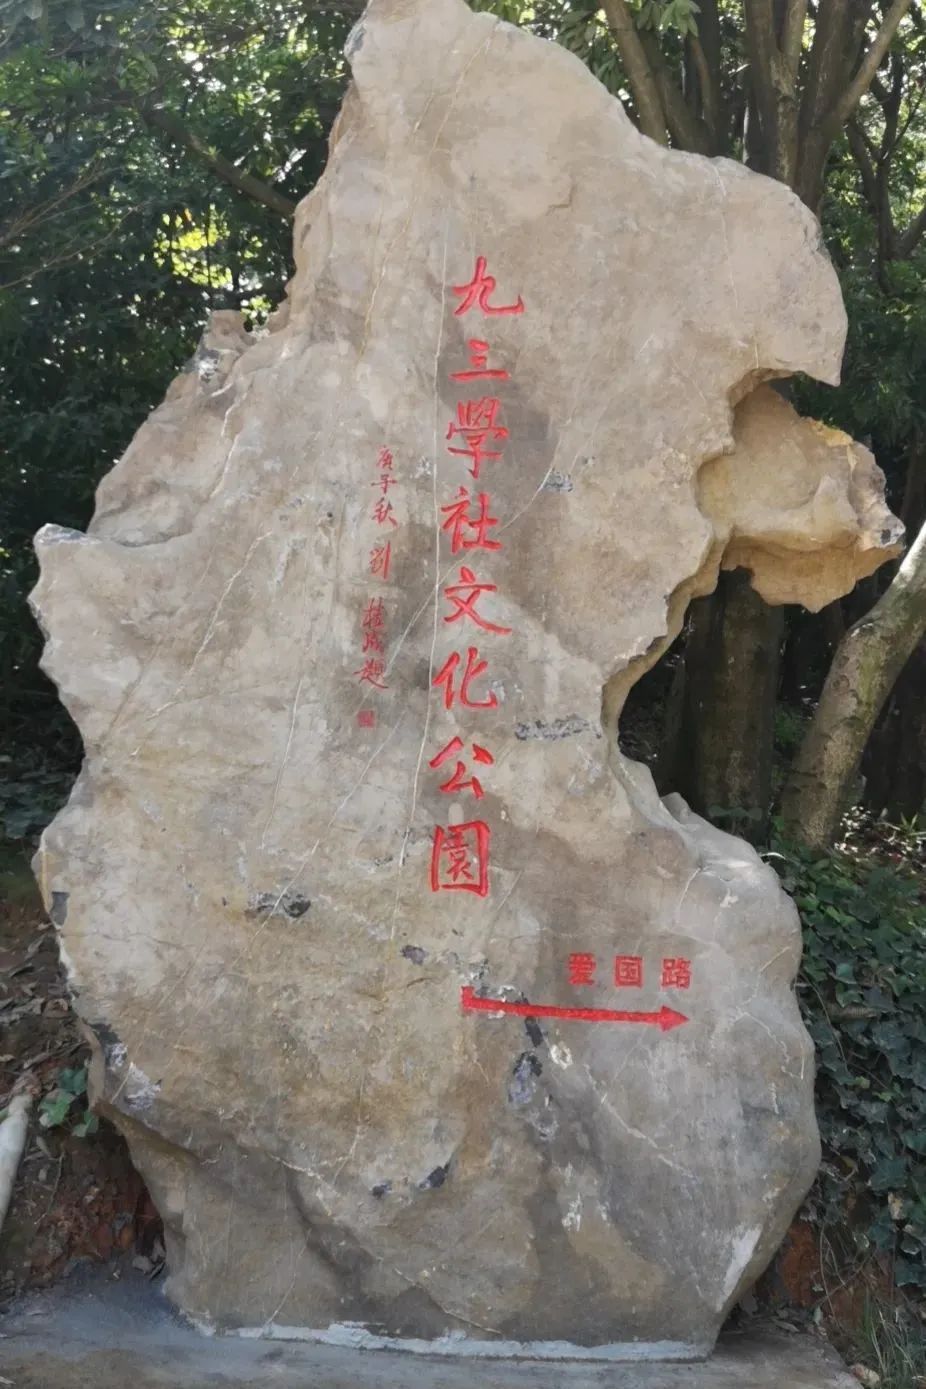 九三學社文化公園
庚子秋 劉桂成題
爱国路